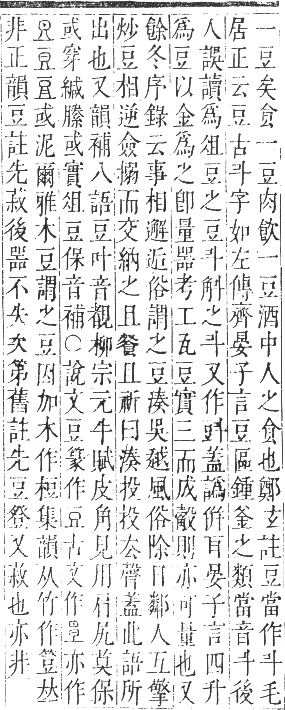 一豆矣食一豆肉飮一豆酒中人之食也鄭玄註豆當作斗毛
居正云豆古斗字如左傳齊晏子言豆區鍾釜之類當音斗後
人誤讀爲俎豆之豆斗斛之斗又作㪷蓋譌倂耳晏子言四升
爲豆以金爲之卽量器考工瓦豆實三而成觳則亦可量也又
餘冬序錄云事相邂逅俗謂之豆湊吳越風俗除日鄰人互擎
炒豆相逆僉搦而交納之且餐且祈曰湊投投去聲蓋此語所
出也又韻補八語豆叶音覩柳宗元牛賦皮角見用肩尻莫保
或穿緘縢或實俎豆保音補○說文豆篆作豆古文作𣅋亦作
𣅋豆㿝或泥爾雅木豆謂之豆因加木作梪集韻从竹作䇺𠀤
非正韻豆註先菽後器不失次第舊註先豆登又菽也亦非